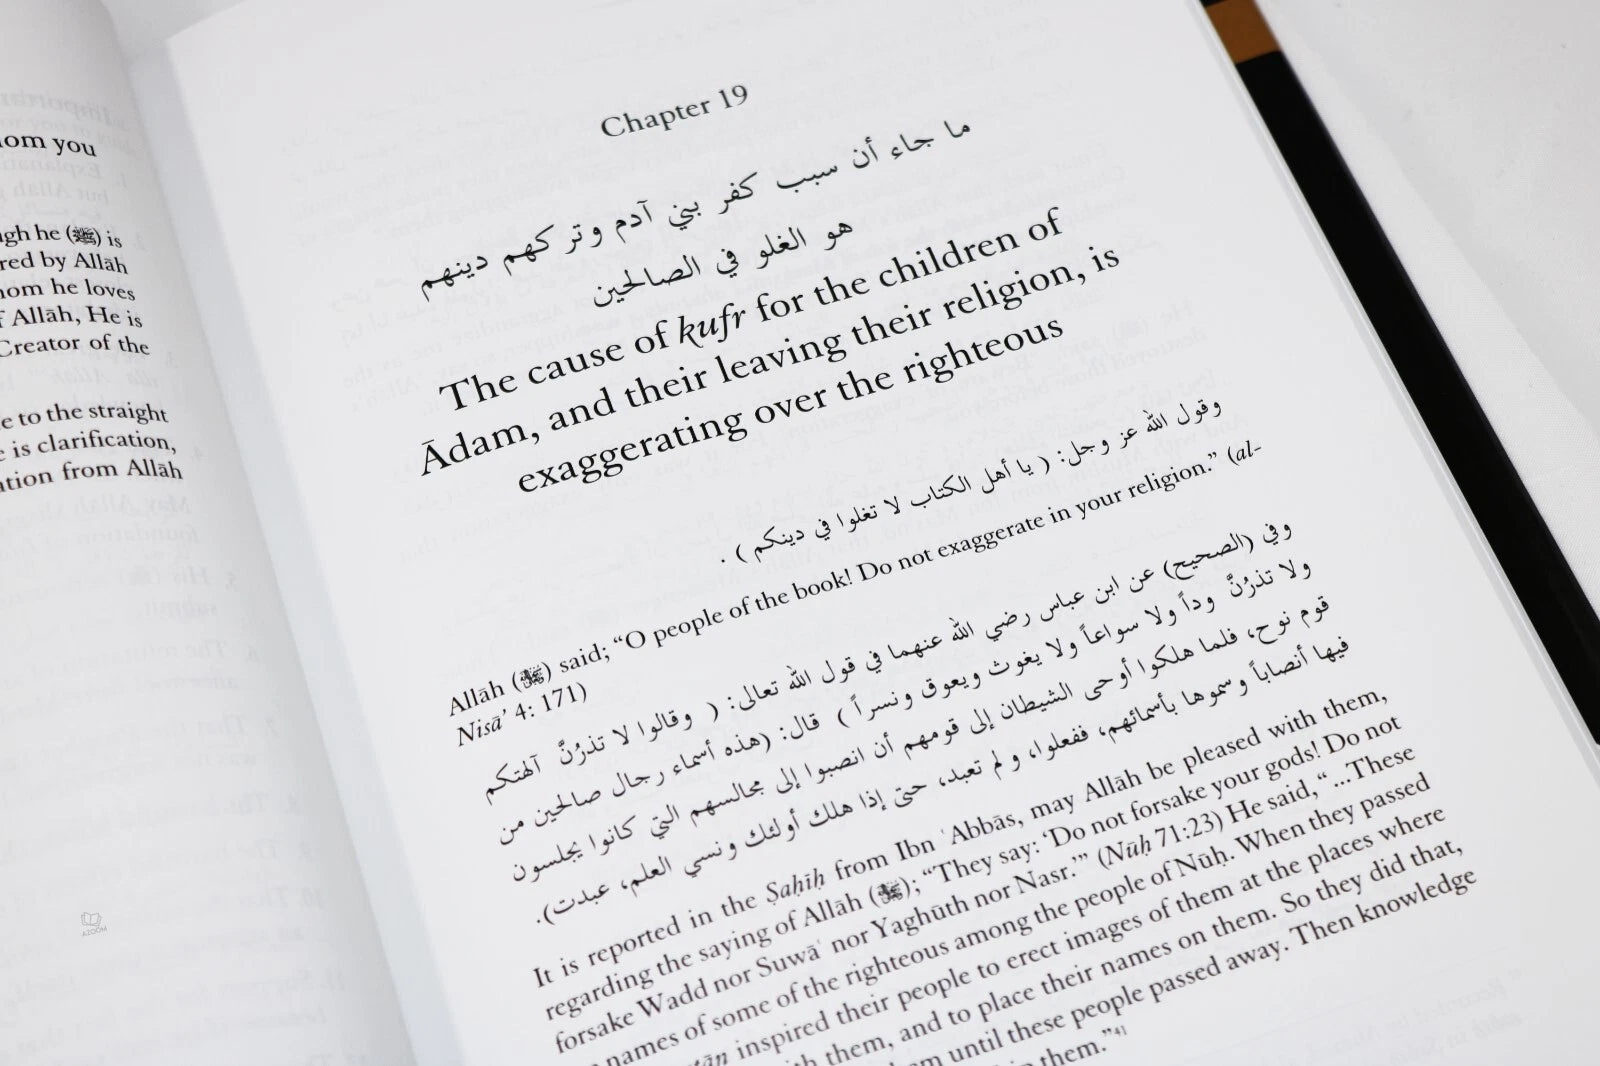 hom you
gh he (ﷺ) is
red by Allāh
hom he loves
f Allāh, He is
Creator of the
e to the straight
e is clarification,
ation from Allāh
AZOOM
Chapter 19
ما جاء أن سبب كفر بني آدم وتركهم دينهم
هو الغلو في الصالحين
The cause of kufr for the children of
Ādam, and their leaving their religion, is
exaggerating over the righteous
وقول الله عز وجل: ( يا أهل الكتاب لا تغلوا في دينكم ) .
Allāh (ﷻ) said; “O people of the book! Do not exaggerate in your religion.” (al-
Nisā’ 4: 171)
وفي (الصحيح) عن ابن عباس رضي الله عنهما في قول الله تعالى: ( وقالوا لا تذرُنَّ آلهتكم
ولا تذرُنَّ وداً ولا سواعاً ولا يغوث ويعوق ونسراً ) قال: (هذه أسماء رجال صالحين من
قوم نوح، فلما هلكوا أوحى الشيطان إلى قومهم أن انصبوا إلى مجالسهم التي كانوا يجلسون
فيها أنصاباً وسموها بأسمائهم، ففعلوا، ولم تعبد، حتى إذا هلك أولئك ونسي العلم، عبدت).
It is reported in the Ṣaḥīḥ from Ibn ʿAbbās, may Allāh be pleased with them,
regarding the saying of Allāh (ﷻ); “They say: ‘Do not forsake your gods! Do not
forsake Wadd nor Suwāʿ nor Yaghūth nor Nasr.’” (Nūḥ 71:23) He said, “...These
names of some of the righteous among the people of Nūḥ. When they passed
tān inspired their people to erect images of them at the places where
th them, and to place their names on them. So they did that,
em until these people passed away. Then knowledge
in them.”⁴¹